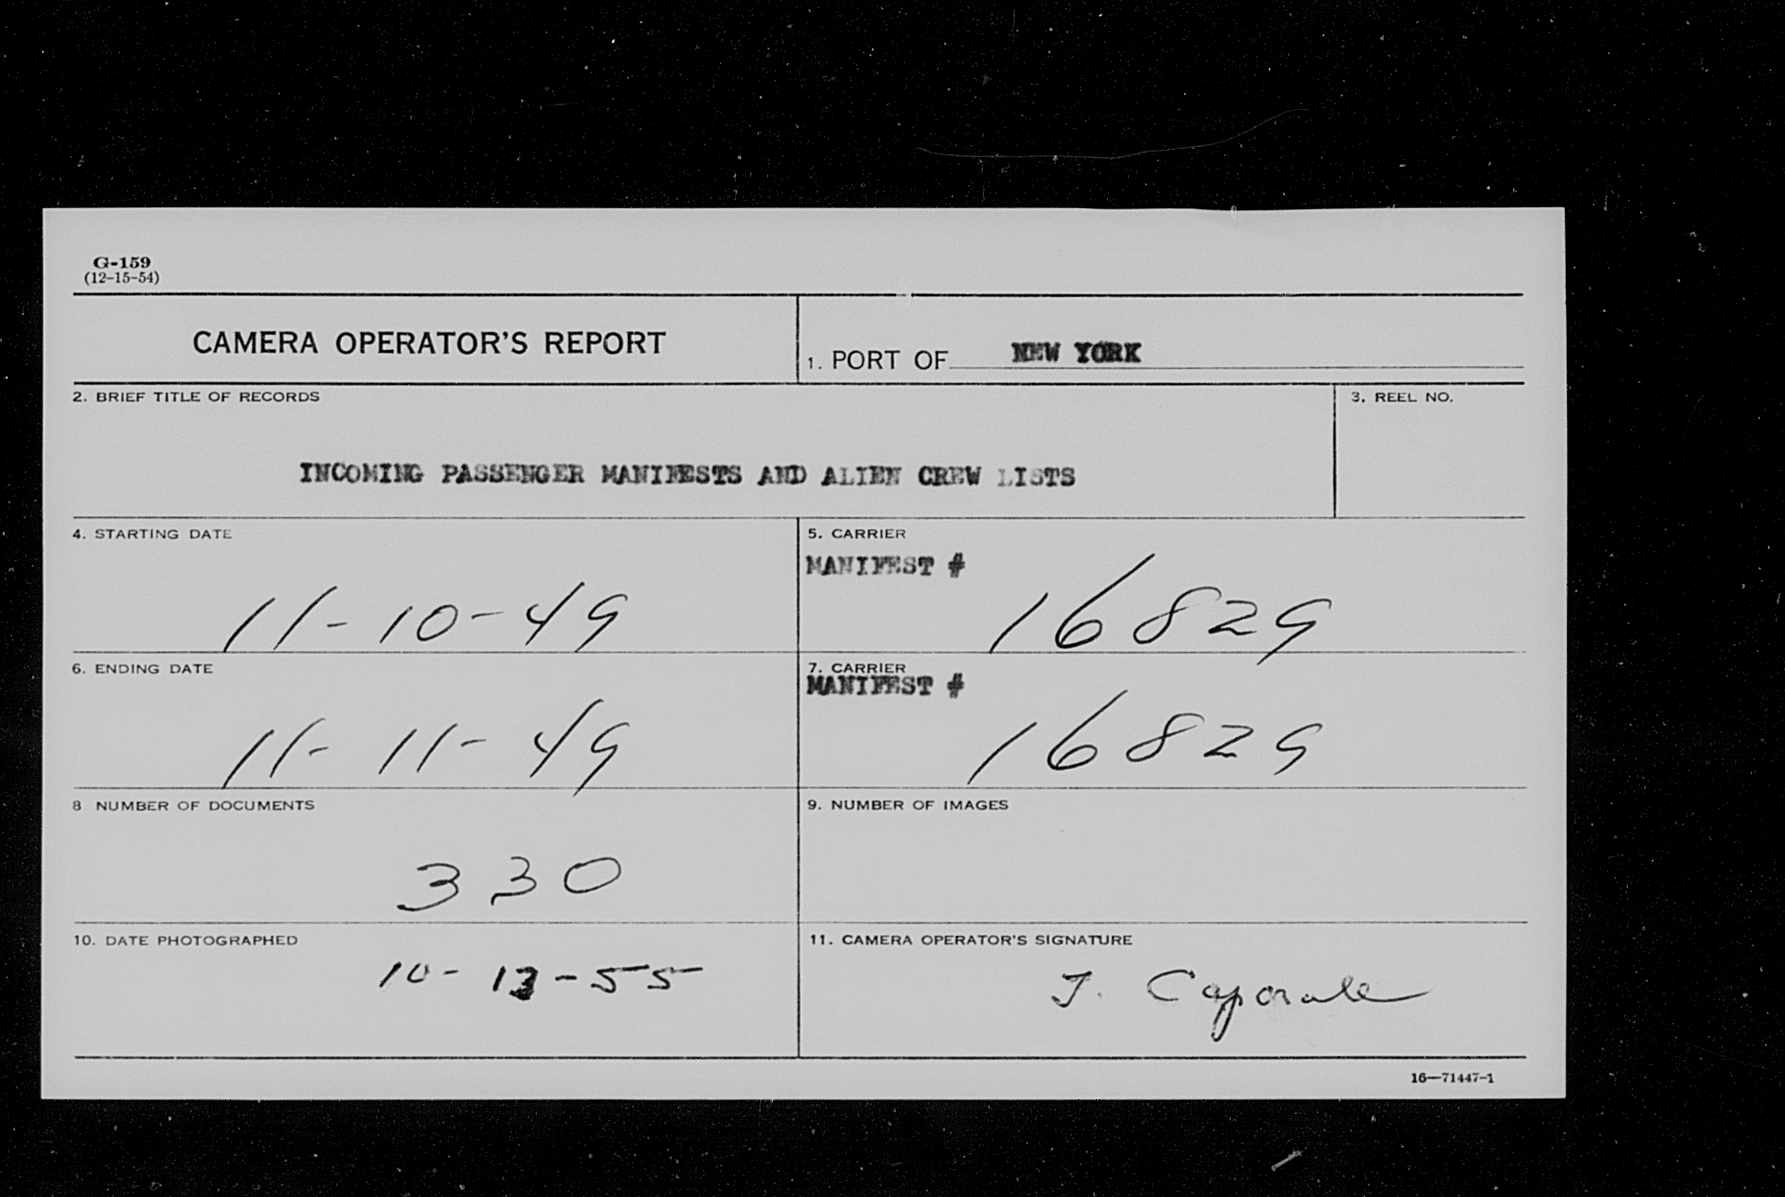 G-159
(12-15-54)
CAMERA OPERATOR'S REPORT
1. PORT OF NEW YORK
2. BRIEF TITLE OF RECORDS
3. REEL NO.
INCOMING PASSENGER MANIFESTS AND ALIEN CREW LISTS
4. STARTING DATE
11-10-49
5. CARRIER
MANIFEST #
16829
6. ENDING DATE
11-11-49
7. CARRIER
MANIFEST #
16829
8 NUMBER OF DOCUMENTS
330
9. NUMBER OF IMAGES
10. DATE PHOTOGRAPHED
10-13-55
11. CAMERA OPERATOR'S SIGNATURE
J. Caporale
16—71447-1